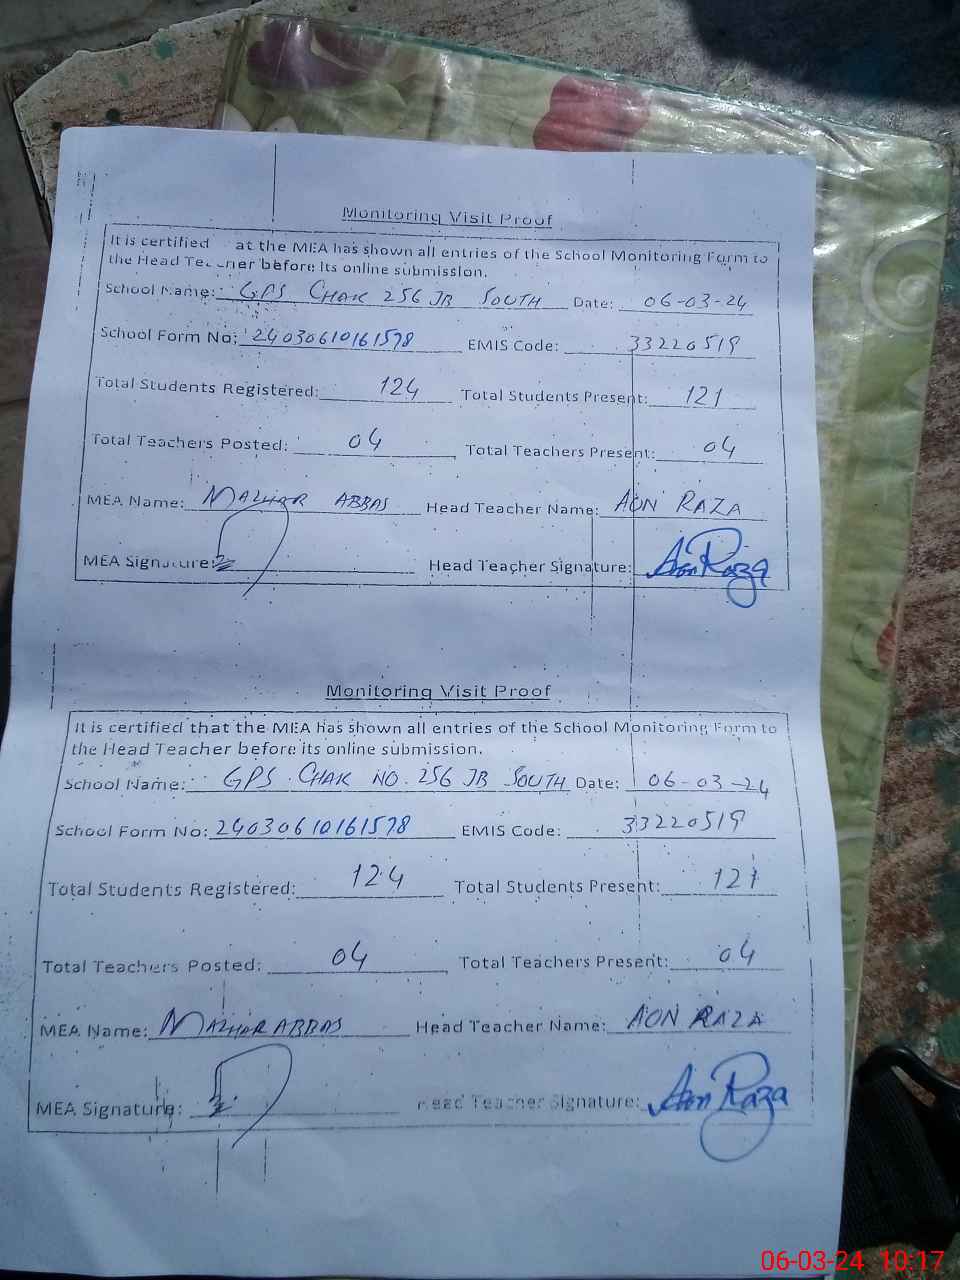 Monitoring Visit Proof
It is certified at the MEA has shown all entries of the School Monitoring Form to
the Head Teacher before its online submission.
School Name: GPS CHAK 256 JB SOUTH Date: 06-03-24
School Form No: 24030610161578 EMIS Code: 33220519
Total Students Registered: 124 Total Students Present: 121
Total Teachers Posted: 04 Total Teachers Present: 04
MEA Name: MAZHAR ABBAS Head Teacher Name: AON RAZA
MEA Signature: Head Teacher Signature: Aon Raza
Monitoring Visit Proof
It is certified that the MEA has shown all entries of the School Monitoring Form to
the Head Teacher before its online submission.
School Name: GPS CHAK NO. 256 JB SOUTH Date: 06-03-24
School Form No: 24030610161578 EMIS Code: 33220519
Total Students Registered: 124 Total Students Present: 121
Total Teachers Posted: 04 Total Teachers Present: 04
MEA Name: MAZHAR ABBAS Head Teacher Name: AON RAZA
MEA Signature: Head Teacher Signature: Aon Raza
06-03-24 10:17